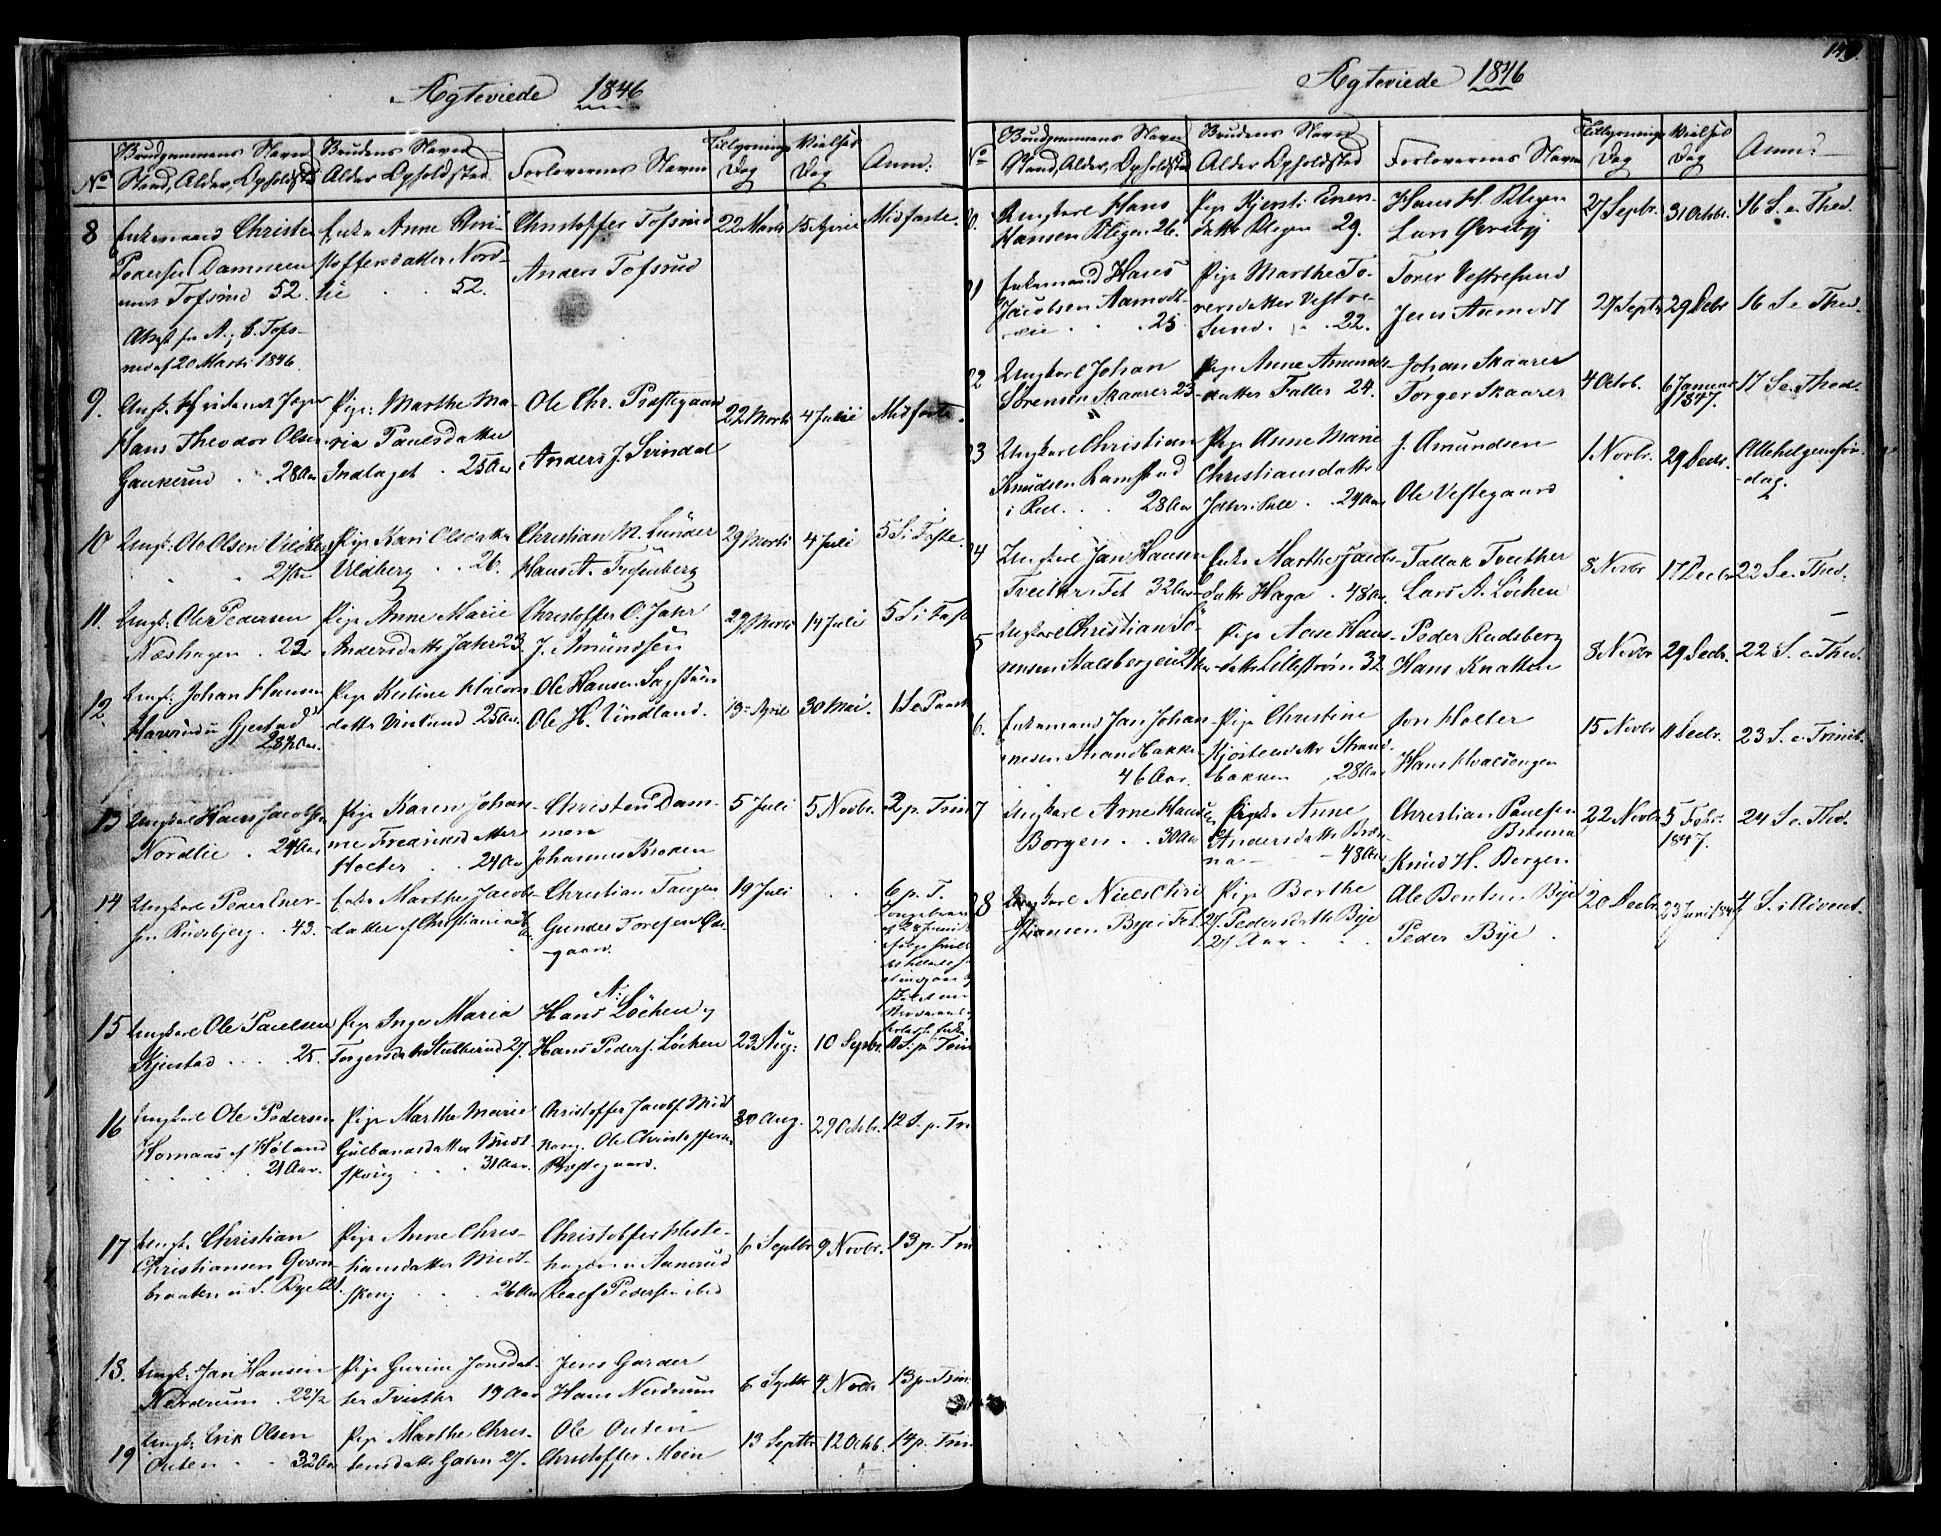 Ægteviede 1846
No
Brudgommens Navn Stand, Alder, Opholdsted
Brudens Navn Alder Opholdsted
Forlovernes Navne
Tillysnings Dag
Vielses Dag
Anm:
8
Enkemand Christen
Pedersen Dammeren
52.
Enke Anne Chri-
stoffersdatter Nord-
lie . . 52.
Christoffer Tofsrud
Anders Tofsrud
22 Marts
15 April
Midfaste.
20 Marts 1846.
9.
Hans Theodor Olsen
Gaukerud . . 28 Aar
Pige: Marthe Ma-
ria Paulsdatter
Indlaget . 25 Aar
Ole Chr. Præstegaard
Anders J. Svindal
22 Marts
4 Julii
Midfaste.
10
Ungk: Ole Olsen Vildberg
Pige Kari Olsdatter
Vildberg . . 26.
Christian M. Lunder
29 Marts
4 Juli
5 S. i Faste.
11.
Ungk: Ole Pedersen
Næshagen . 22
Pige Anne Marie
Andersdatter Jahr 23.
Christoffer O. Jahr
J. Amundsen
29 Marts
14 Juli
5 S. i Fast
12.
Ungk: Johan Hansen
28½ Aar.
Ole Hansen
Ole H. Vindland.
13 April
30 Mai.
1 S. e. Paask
13
Ungkarl Hans Jacobsen
Nordlie . 24 Aar
Pige Karen Johan-
ne Fredriksdatter
Holter . . 24 Aar
Christen Dam-
mern
Johannes Broken
5 Juli
5 Novbr.
2 p. Trin
14
Ungkarl Peder Ener-
sen Rudsbjerg . 43.
Enke Marthe Jacobs-
datter af Christiania
Christian Tangen
Gunder Toresen
gaard.
19 Juli
6 p. T.
15
Ungkarl Ole Paulsen
Kjustad . . . 25.
Pige Inger Maria
Torgersdatter Stubberud 27.
Hans N: Löchen og
Hans Peders. Löchen
23 Aug:
10 Septbr.
11 S. p. Trin
16
Ungkarl Ole Pedersen
Hornaas af Høland
21 Aar.
Pige Marthe Marie
Gulbrandsdatter Midt-
skoug . . . 31 Aar.
Christoffer Jacobs. Midt
skoug. Ole Christoffersen
Præstegaard.
30 Aug.
29 Octbr.
12 S. p. Tri
17
Ungk. Christian
Christiansen
Pige Anne Chris-
tiansdatter Midt-
skoug . . . 26 Aar
Christoffer Heste-
hagen i Aanerud
Roalf Pedersen ibid
6 Septbr
9 Novbr.
13 p. Trin
18.
Ungk: Jan Hansen
Nerdrum . 22½
Pige Gurine Jonsdat-
ter Tveiter 19 Aar
Jens Garder
Hans Nerdrum
6 Septbr
4 Novbr
13 p. Trin:
19
Ungk: Erik Olsen
Outen . . 32 Aar
Pige Marthe Chris-
tensdatter Galen 27.
Ole Outen
Christoffer Moen
13 Septbr
12 Octb.
14 p. Trin
149.
Ægteviede 1846
No
Brudgommens Navn Stand, Alder, Opholdsted
Brudens Navn Alder Opholdsted
Forlovernes Navne
Tillysnings Dag
Vielses Dag
Anm:
0.
Ungkarl Hans
Hansen Kligen 26.
Pige Kjersti Eners-
datter Kligen 29.
Hans H. Kligen
Lars Ørrsby
27 Septbr.
31 Octbr.
16 S. e. Thed.
1
Enkemand Hans
Jacobsen Aamodt-
eie . . . 25
Pige Marthe To-
rersdatter Vestre-
Sund . . . 22.
Torer Vestresund
Jens Aamodt
27 Septbr
29 Debr
16 S. e. Thed.
22
Ungkarl Johan
Sørensen Skaarer 23
Pige Anne Amunds-
datter Faller 24.
Johan Skaarer
Torger Skaarer
4 Octob.
6 Januar 1847.
17 S. e. Thed.
3
Ungkarl Christian
Knudsen Ramstad
. . . 28 Aar
Pige Anne Marie
Christiansdatter
. 29 Aar
J. Amundsen
Ole Vestegaard
1 Novbr.
29 Decbr.
Allehelgens
dag.
4
Ungkarl Jan Hansen
Tveiter i Fet 32 Aar
Enke Marthe Jacobs-
datter Haga . 48 Aar
Tallak Tveither
Lars A. Löchen
8 Novbr
17 Decbr
22 S. e. Thed.
5
Ungkarl Christian Sö-
rensen
Pige Aase Hans-
datter Lillestrøm 32.
Peder Rudsberg
Hans Knatten
8 Novbr
29 Decbr.
22 S. e. Thed.
6.
Enkemand Jan Johan-
nesen Strandbakken
46 Aar.
Pige Christine
Kjøstelsdatter Strand-
bakken . 28 Aar
Jon Holter
Hans Hvalsengen
15 Novbr
11 Decbr.
23 S. e. Trinit.
7
Ungkarl Arne Hansen
Borgen . . 30 Aar
Anne
Andersdatter Brön-
na . . . 48 Aar
Christian Paulsen
Brönna
Knud H. Borgen.
22 Novbr
5 Febr. 1847.
24 S. e. Thed.
28
Ungkarl Niels Chri
stiansen Bye i Fet. 27.
Pige Berthe
Pedersdatter Bye
27 Aar . . .
Ole Bentsen Bye
Peder Bye .
20 Decbr.
23 Juni 1847
4 S. i Advent.